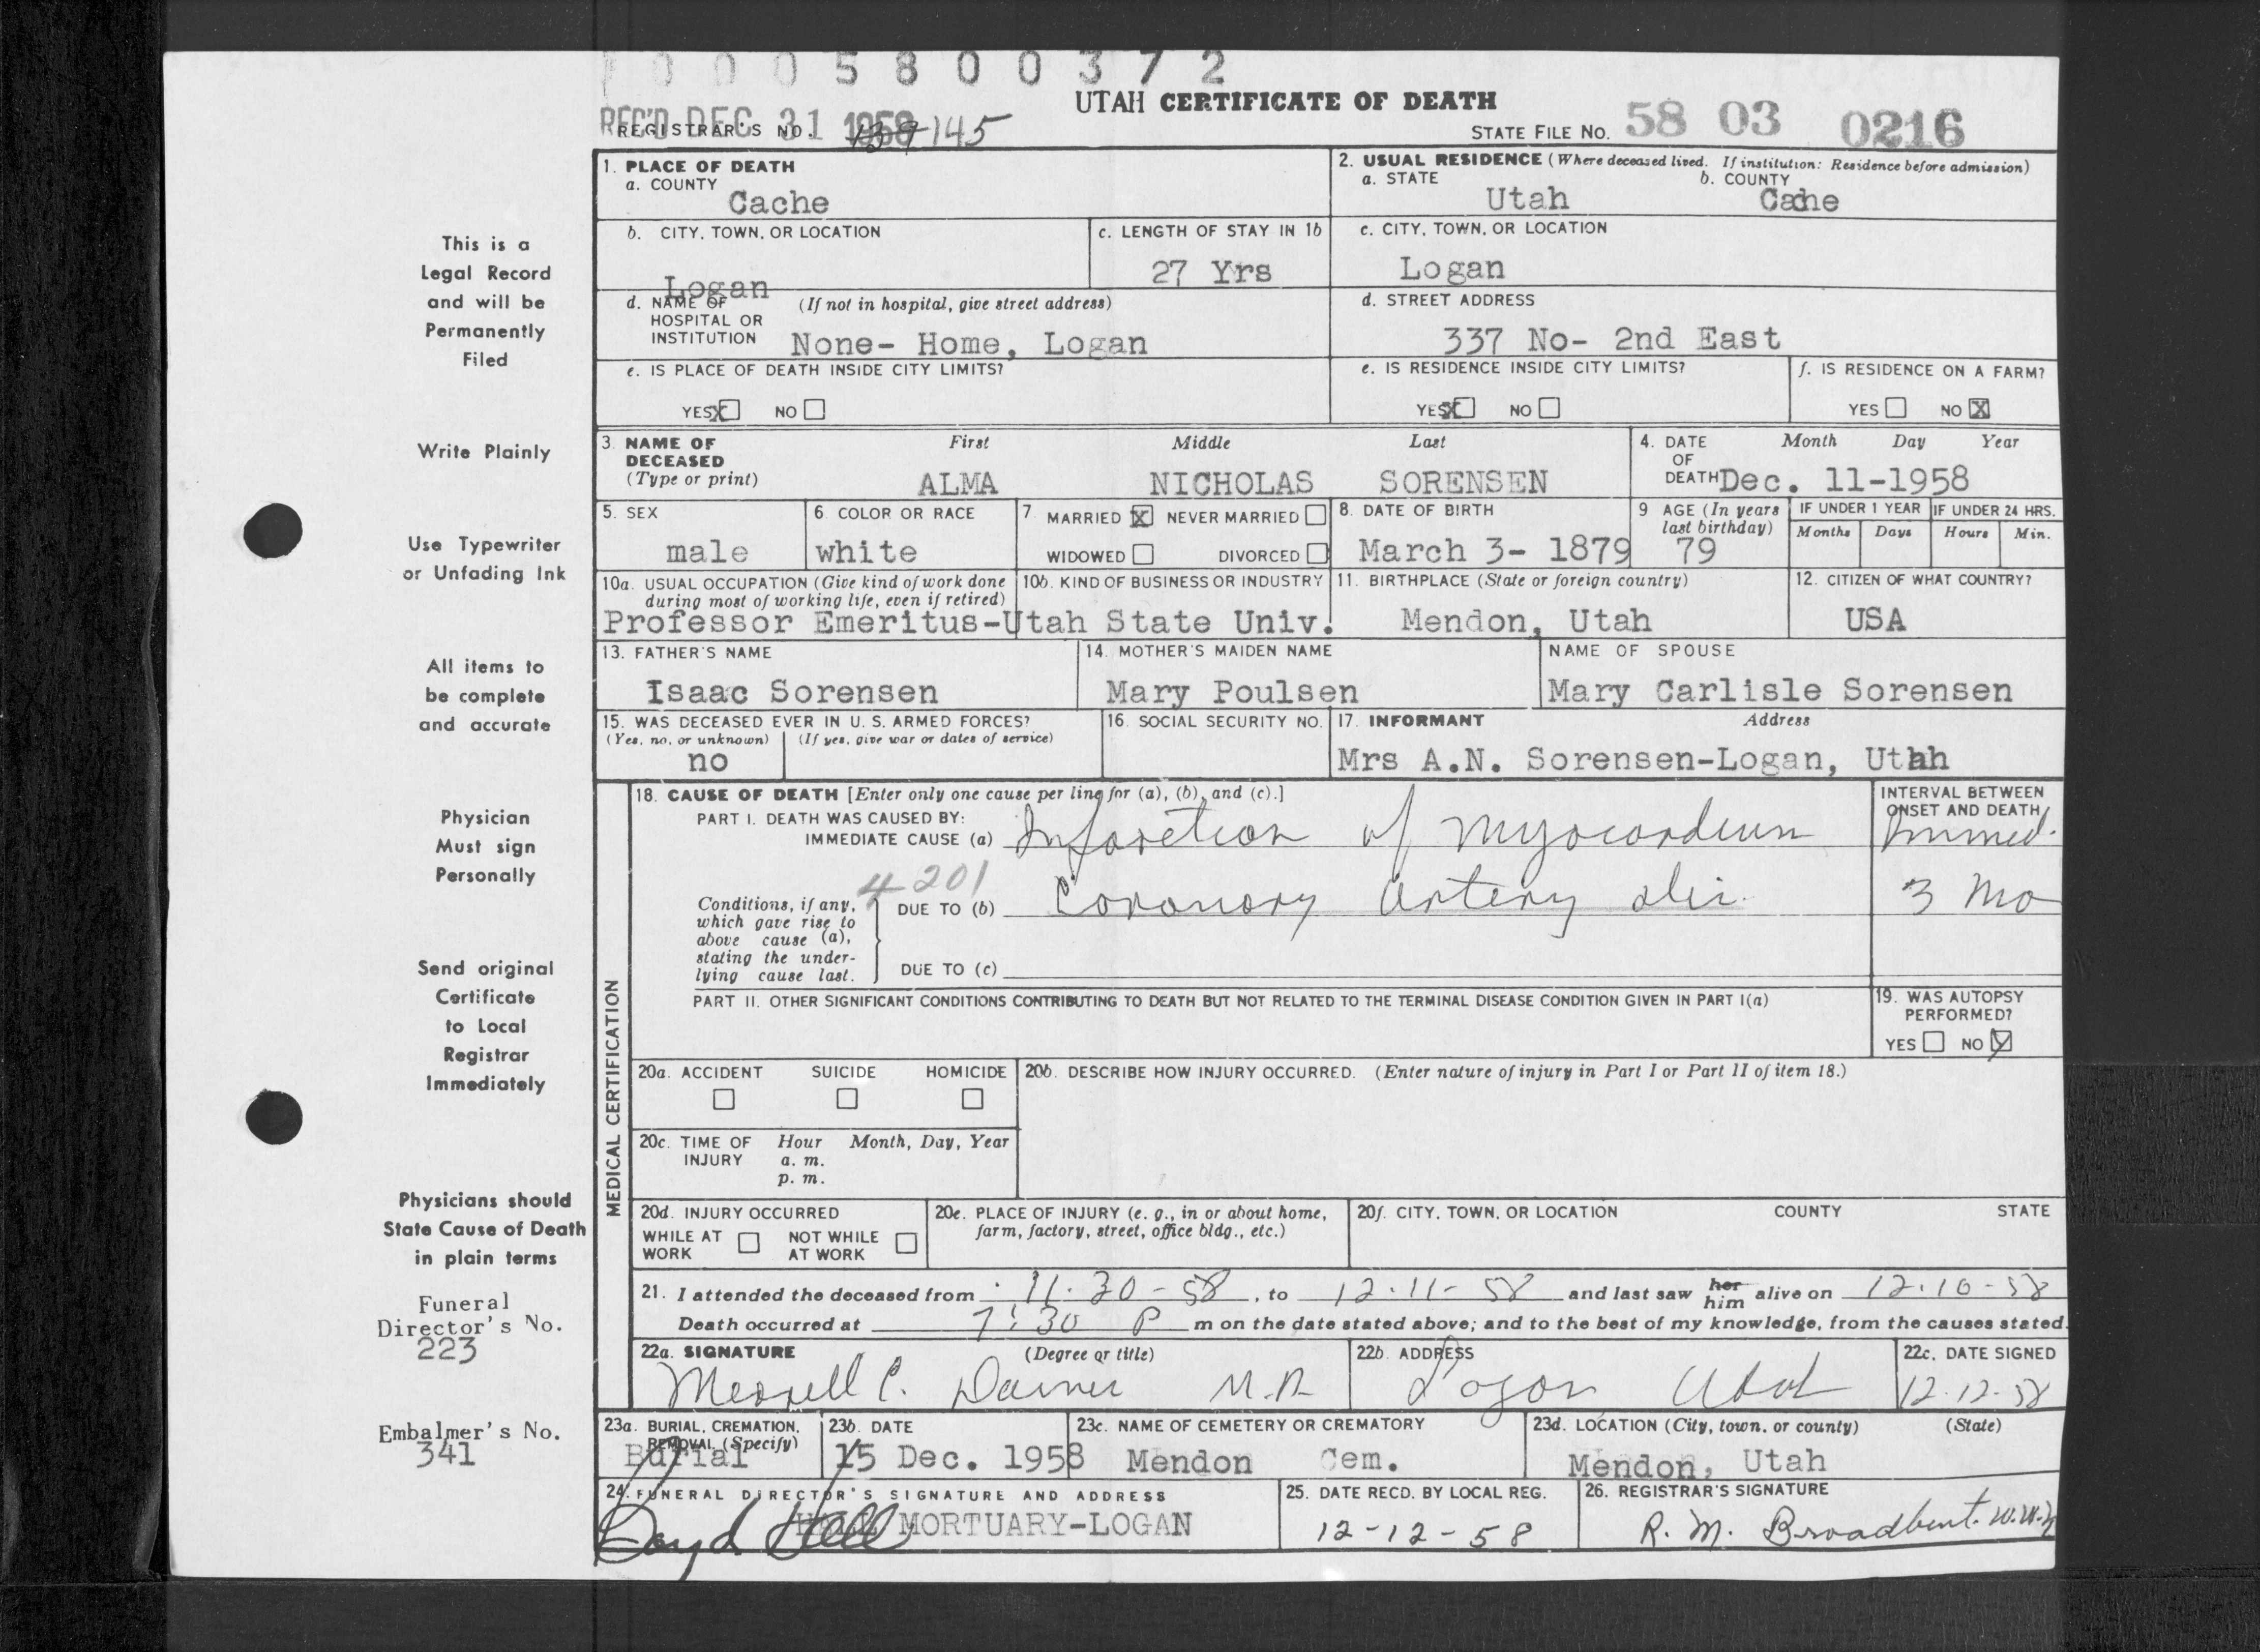 0 0 0 5 8 0 0 3 7 2
UTAH CERTIFICATE OF DEATH
REC'D DEC 31 1958
REGISTRAR'S NO. 139 145
STATE FILE NO. 58 03 0216
1. PLACE OF DEATH
a. COUNTY
Cache
2. USUAL RESIDENCE (Where deceased lived. If institution: Residence before admission)
a. STATE b. COUNTY
Utah Cache
b. CITY, TOWN, OR LOCATION
Logan
c. LENGTH OF STAY IN 1b
27 Yrs
c. CITY, TOWN, OR LOCATION
Logan
d. NAME OF (If not in hospital, give street address)
HOSPITAL OR
INSTITUTION None- Home, Logan
d. STREET ADDRESS
337 No- 2nd East
e. IS PLACE OF DEATH INSIDE CITY LIMITS?
YES X NO
e. IS RESIDENCE INSIDE CITY LIMITS?
YES X NO
f. IS RESIDENCE ON A FARM?
YES NO X
3. NAME OF First Middle Last
DECEASED
(Type or print) ALMA NICHOLAS SORENSEN
4. DATE Month Day Year
OF
DEATH Dec. 11-1958
5. SEX
male
6. COLOR OR RACE
white
7. MARRIED X NEVER MARRIED
WIDOWED DIVORCED
8. DATE OF BIRTH
March 3- 1879
9 AGE (In years
last birthday)
79
IF UNDER 1 YEAR IF UNDER 24 HRS.
Months Days Hours Min.
10a. USUAL OCCUPATION (Give kind of work done
during most of working life, even if retired)
10b. KIND OF BUSINESS OR INDUSTRY
Professor Emeritus-Utah State Univ.
11. BIRTHPLACE (State or foreign country)
Mendon, Utah
12. CITIZEN OF WHAT COUNTRY?
USA
13. FATHER'S NAME
Isaac Sorensen
14. MOTHER'S MAIDEN NAME
Mary Poulsen
NAME OF SPOUSE
Mary Carlisle Sorensen
15. WAS DECEASED EVER IN U. S. ARMED FORCES?
(Yes, no, or unknown) (If yes, give war or dates of service)
no
16. SOCIAL SECURITY NO.
17. INFORMANT Address
Mrs A.N. Sorensen-Logan, Utah
MEDICAL CERTIFICATION
18. CAUSE OF DEATH [Enter only one cause per line for (a), (b), and (c).]
INTERVAL BETWEEN
ONSET AND DEATH
PART I. DEATH WAS CAUSED BY:
IMMEDIATE CAUSE (a) Infarction of Myocardium Immed.
4201
Conditions, if any,
which gave rise to
above cause (a),
stating the under-
lying cause last.
DUE TO (b) Coronary artery dis. 3 Mo
DUE TO (c)
PART II. OTHER SIGNIFICANT CONDITIONS CONTRIBUTING TO DEATH BUT NOT RELATED TO THE TERMINAL DISEASE CONDITION GIVEN IN PART I(a)
19. WAS AUTOPSY
PERFORMED?
YES NO
20a. ACCIDENT SUICIDE HOMICIDE
20b. DESCRIBE HOW INJURY OCCURRED. (Enter nature of injury in Part I or Part II of item 18.)
20c. TIME OF Hour Month, Day, Year
INJURY a. m.
p. m.
20d. INJURY OCCURRED
WHILE AT NOT WHILE
WORK AT WORK
20e. PLACE OF INJURY (e. g., in or about home,
farm, factory, street, office bldg., etc.)
20f. CITY, TOWN, OR LOCATION COUNTY STATE
21. I attended the deceased from 11-30-58, to 12-11-58 and last saw her him alive on 12-10-58
Death occurred at 7:30 P m on the date stated above; and to the best of my knowledge, from the causes stated.
22a. SIGNATURE (Degree or title)
Merrell C. Daines M.D.
22b. ADDRESS
Logan Utah
22c. DATE SIGNED
12-12-58
23a. BURIAL, CREMATION,
REMOVAL (Specify)
Burial
23b. DATE
15 Dec. 1958
23c. NAME OF CEMETERY OR CREMATORY
Mendon Cem.
23d. LOCATION (City, town, or county) (State)
Mendon, Utah
24. FUNERAL DIRECTOR'S SIGNATURE AND ADDRESS
HALL MORTUARY-LOGAN
25. DATE RECD. BY LOCAL REG.
12-12-58
26. REGISTRAR'S SIGNATURE
R. M. Broadbent
This is a
Legal Record
and will be
Permanently
Filed
Write Plainly
Use Typewriter
or Unfading Ink
All items to
be complete
and accurate
Physician
Must sign
Personally
Send original
Certificate
to Local
Registrar
Immediately
Physicians should
State Cause of Death
in plain terms
Funeral
Director's No.
223
Embalmer's No.
341